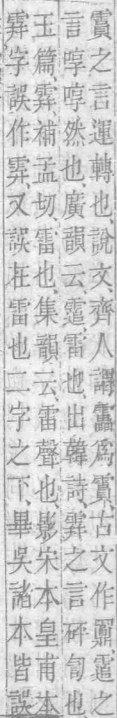 霣之言運轉也、說文、齊人謂靁爲霣、古文作𩇓、霆之
言嘡嘡然也、廣韻云、霆、雷也、出韓詩、䨔之言砰訇也、
玉篇、䨔補孟切、雷也、集韻云、雷聲也、影宋本皇甫本
䨔字誤作䨓、又誤在雷也二字之下、畢吳諸本皆誤